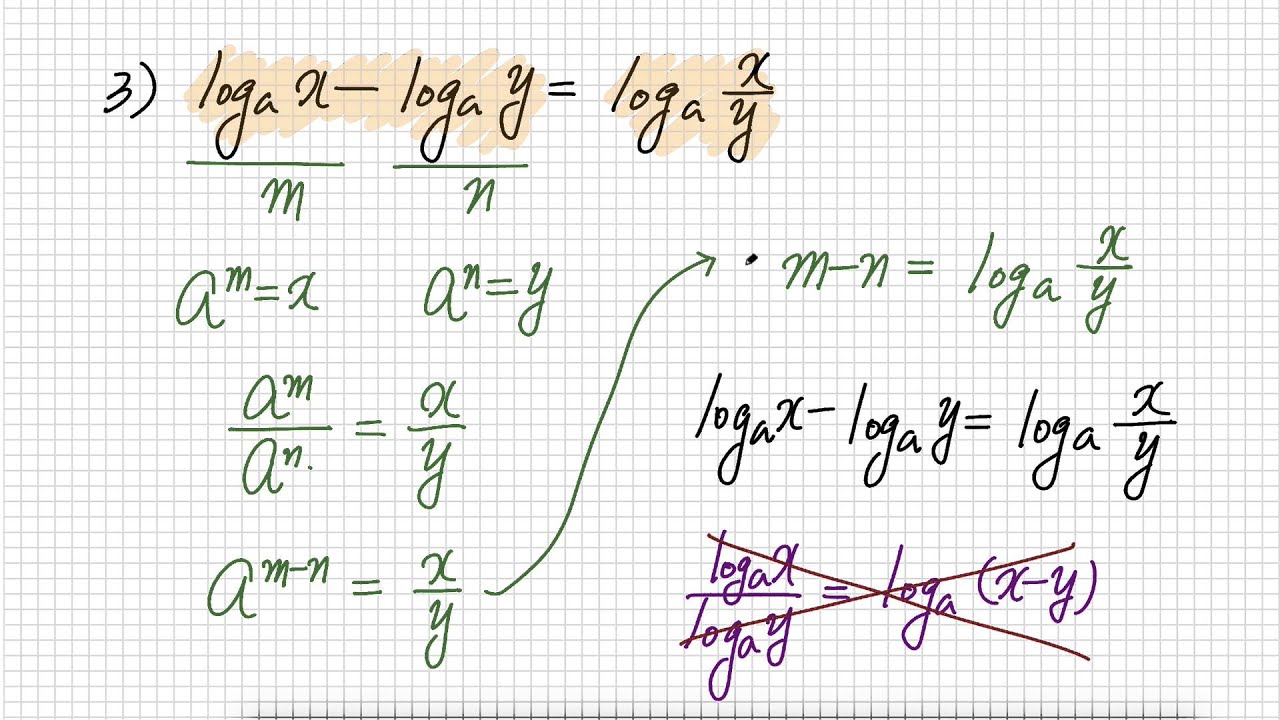 3) logₐ x − logₐ y = logₐ x/y
m n
aᵐ = x aⁿ = y
aᵐ/aⁿ = x/y
aᵐ⁻ⁿ = x/y
· m−n = logₐ x/y
logₐ x − logₐ y = logₐ x/y
logₐ x/logₐ y = logₐ (x−y)